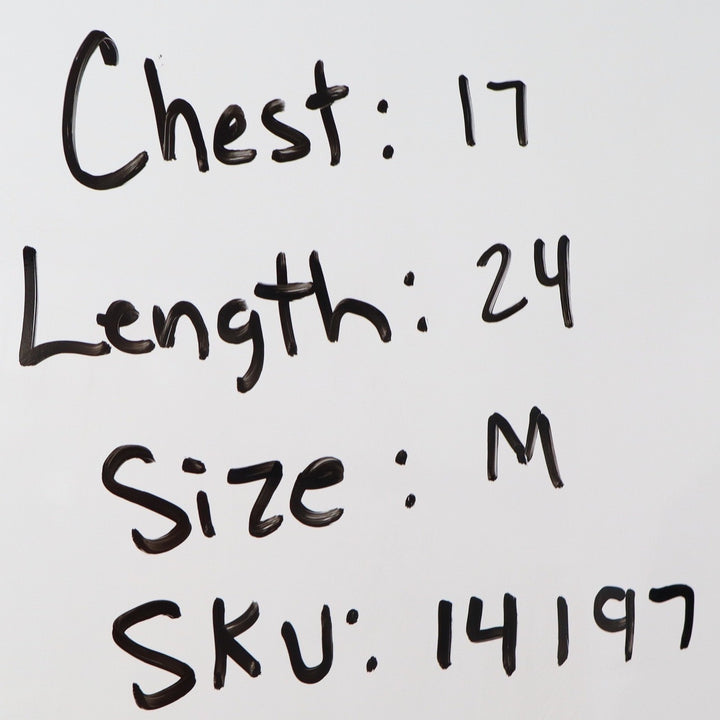 Chest: 17
Length: 24
Size: M
SKU: 14197